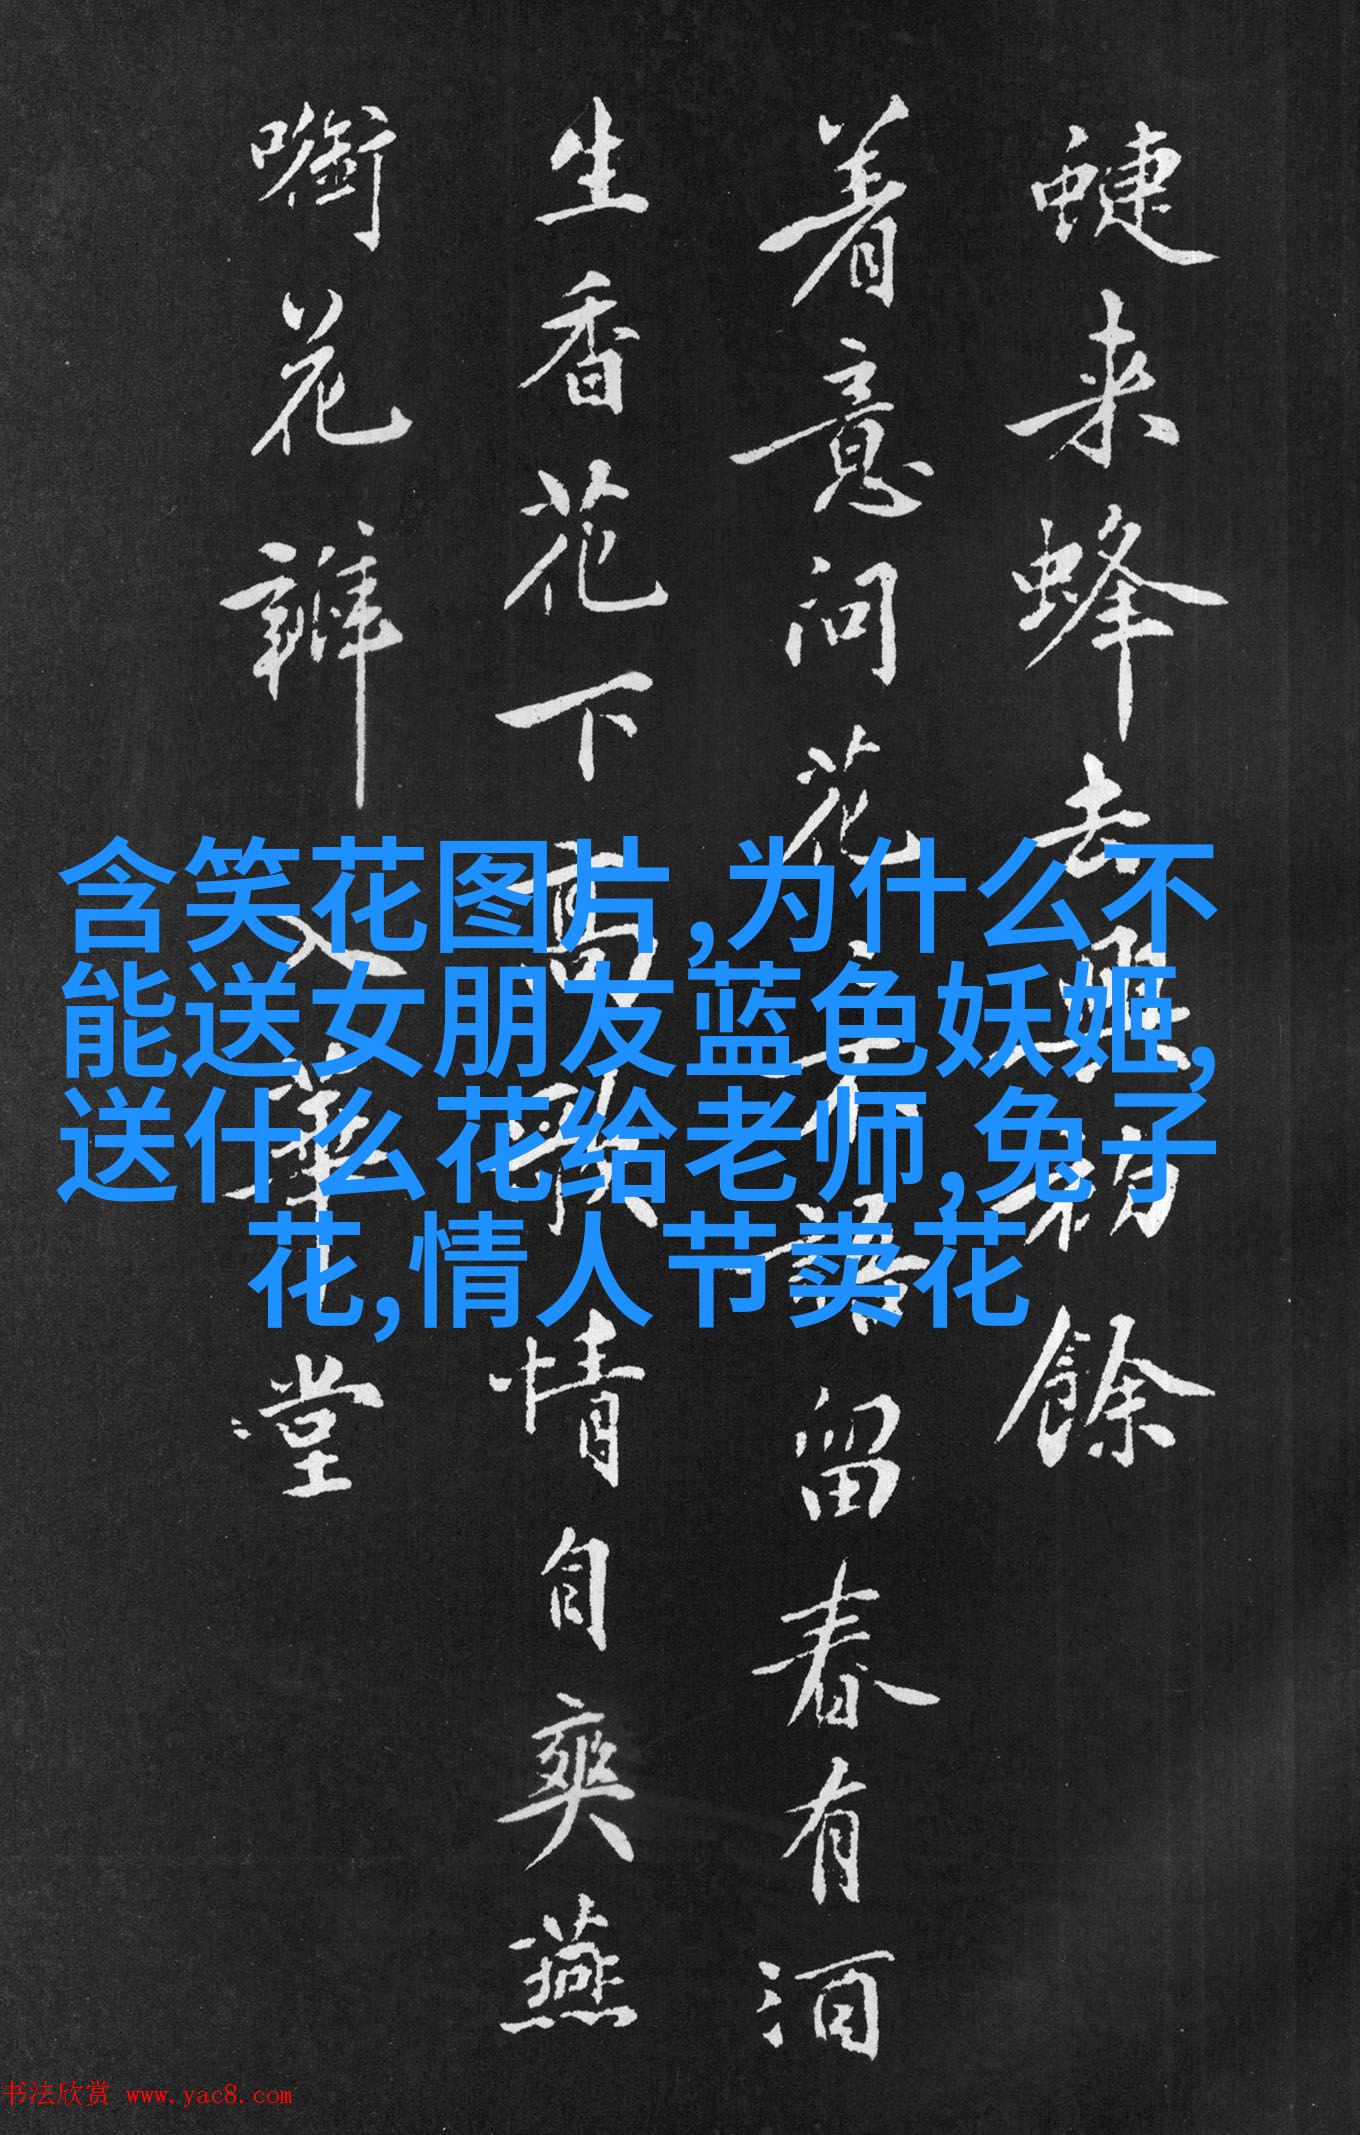 蜨来蜂去初餘
着意问花不語留春有酒
生香花下高歌情自爽燕
花瓣入華堂
含笑花图片,为什么不
能送女朋友蓝色妖姬,
送什么花给老师,兔子
花,情人节卖花
书法欣赏 www.yac8.com